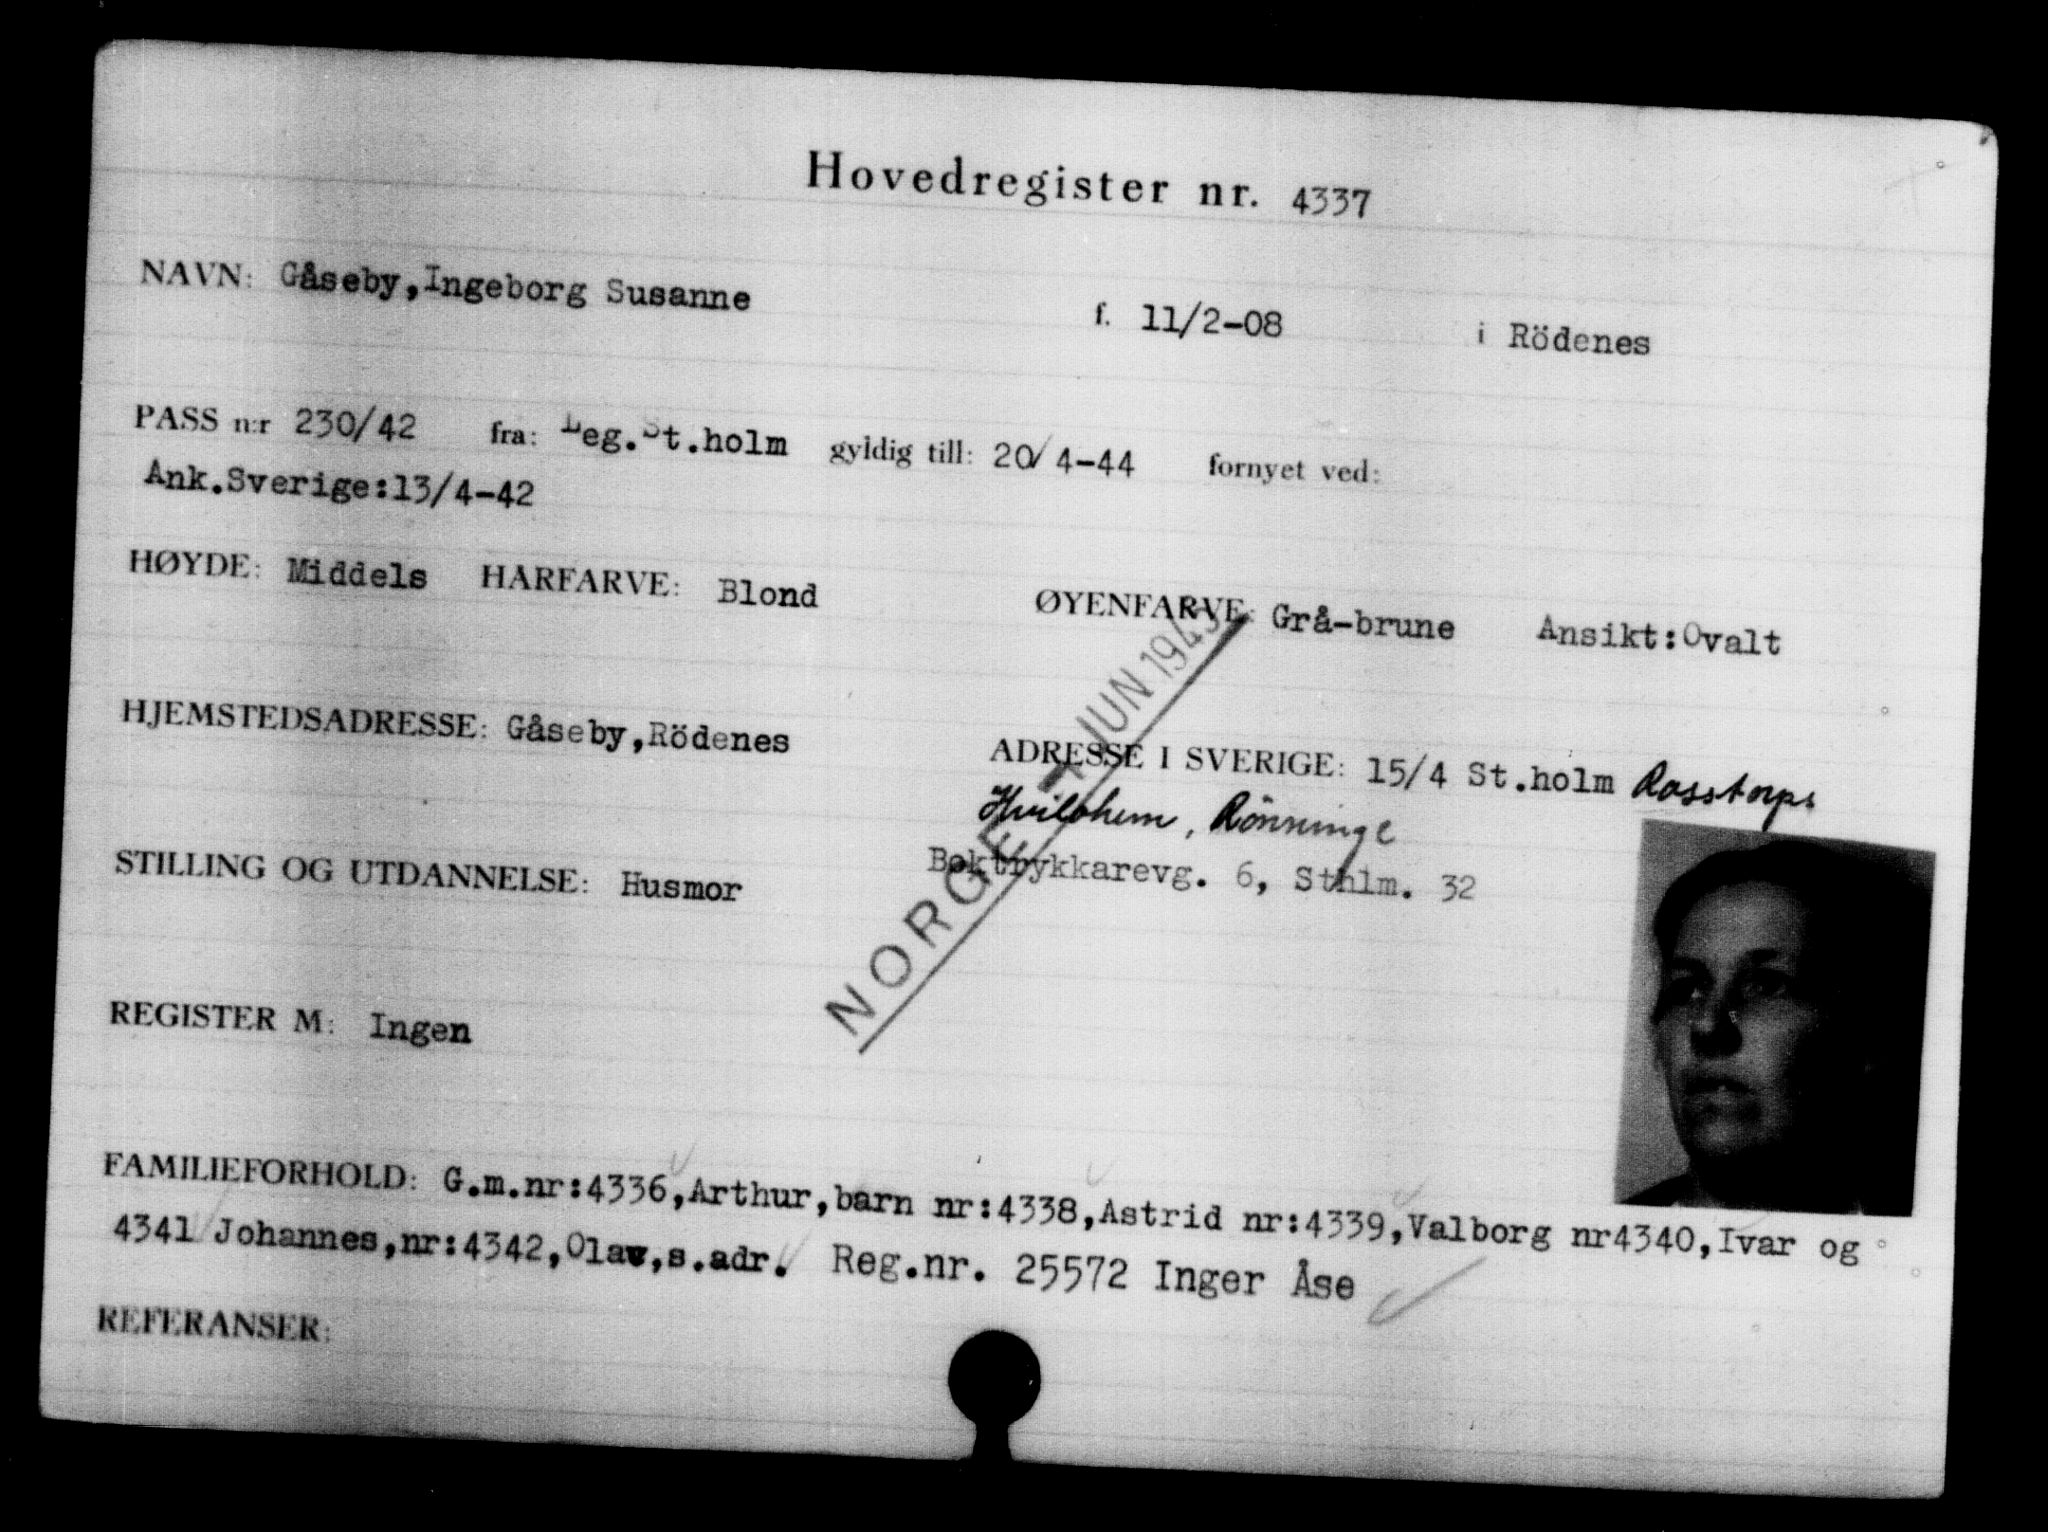 Hovedregister nr. 4337
NAVN: Gåseby,Ingeborg Susanne f. 11/2-08 i Rödenes
PASS n:r 230/42 fra: Leg.St.holm gyldig till: 20/4-44 fornyet ved:
Ank.Sverige:13/4-42
HØYDE: Middels HARFARVE: Blond ØYENFARVE: Grå-brune Ansikt:Ovalt
HJEMSTEDSADRESSE: Gåseby,Rödenes ADRESSE I SVERIGE: 15/4 St.holm Rosstorps
Hvilohem, Rönninge
STILLING OG UTDANNELSE: Husmor Boktrykkarevg. 6, Sthlm. 32
NORGE JUN 1945
REGISTER M: Ingen
FAMILIEFORHOLD: G.m.nr:4336,Arthur,barn nr:4338,Astrid nr:4339,Valborg nr4340,Ivar og
4341 Johannes,nr:4342,Olav,s.adr. Reg.nr. 25572 Inger Åse
REFERANSER: